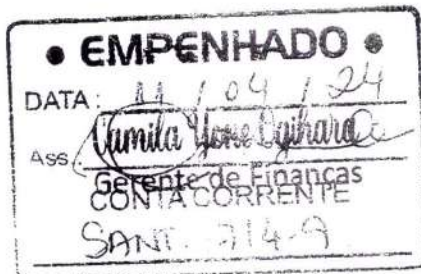 • EMPENHADO •
DATA: 11 / 04 / 24
Ass. Camila Yone Ogihara
Gerente de Finanças
CONTA CORRENTE
SANT. 714-9